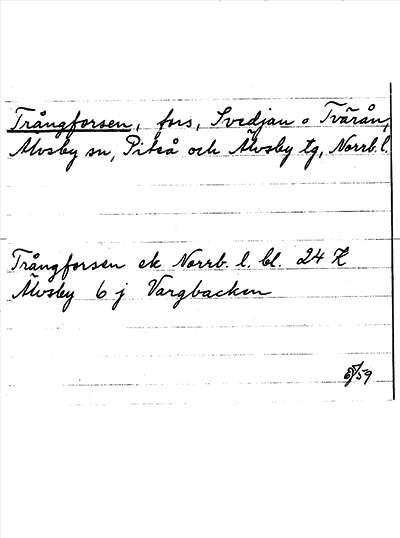 Trångforsen, fors, Svedjan o Tvärån,
Älvsby sn, Piteå och Älvsby tg, Norrb. l.
Trångforsen ek Norrb. l. bl. 24 K
Älvsby 6 j Vargbacken